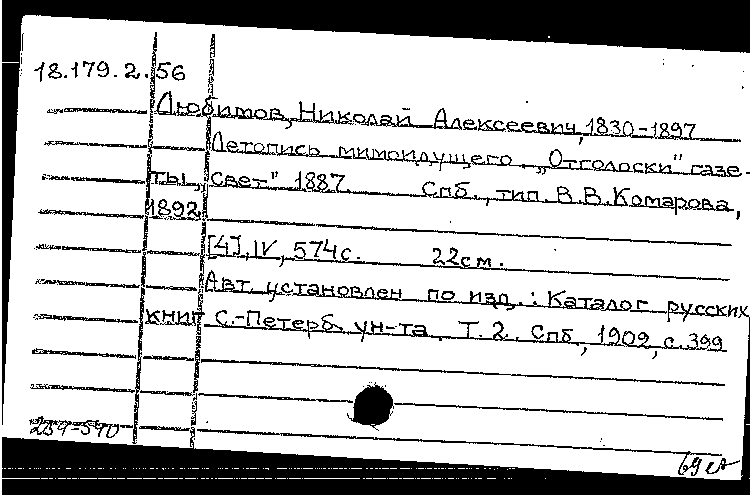 18.179.2.56
Любимов, Николай Алексеевич, 1830-1897
Летопись мимоидущего. „Отголоски" газе-
ты „Свет" 1887. Спб., тип. В.В.Комарова,
1892.
[4], IV, 574 с. 22 см.
Авт. установлен по изд.: Каталог русских
книг С.-Петерб. ун-та. Т. 2. Спб., 1902, с. 399
239-590